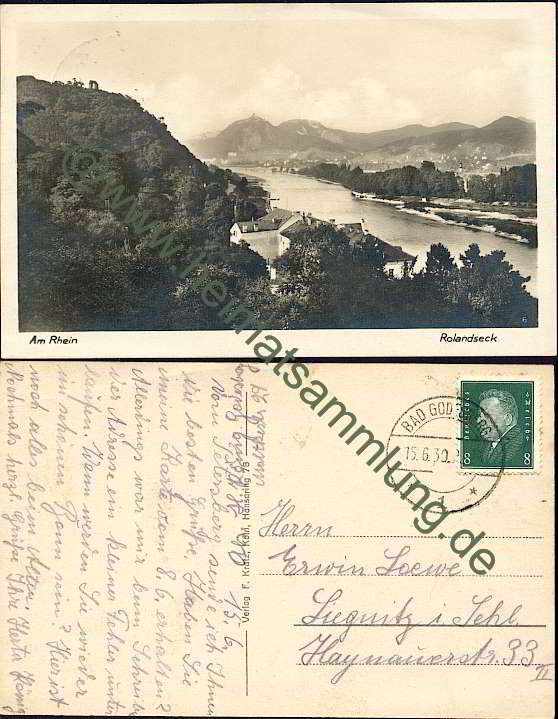 Am Rhein
Rolandseck
6
www.heimatsammlung.de
BAD GODESBERG
15.6.30.
DEUTSCHES REICH
8 8
Herrn
Erwin Loewe
Liegnitz i. Schl.
Haynauerstr. 33 II
Verlag F. Kratz, Köln, Hansaring 78
15. 6.
Vom Petersberg sende ich Ihnen
die besten Grüße. Haben Sie
meine Karte vom 8. 6. erhalten?
Allerdings war mir beim Schreiben
der Adresse ein kleiner Fehler unter-
laufen. Wann werden Sie wieder
im schönen Bonn sein? Hier ist
noch alles beim Alten.
Nochmals herzl. Grüße Ihre Herta König